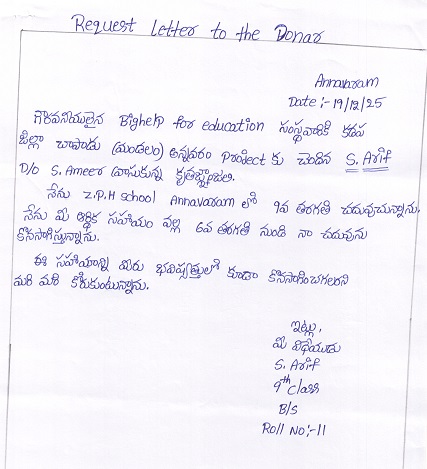 Request Letter to the Donar
Annavaram
Date :- 19/12/25
గౌరవనీయులైన Bighelp for education సంస్థవారికి కడప
జిల్లా చాపాడు (మండలం) అన్నవరం Project కు చెందిన S. Arif
D/o S. Ameer వ్రాసుకున్న కృతజ్ఞతాంజలి.
నేను Z.P.H school Annavaram లో 9వ తరగతి చదువుచున్నాను.
నేను మీ ఆర్థిక సహాయం వల్ల 6వ తరగతి నుండి నా చదువును
కొనసాగిస్తున్నాను.
ఈ సహాయాన్ని మీరు భవిష్యత్తులో కూడా కొనసాగించగలరని
మరి మరి కోరుకుంటున్నాను.
ఇట్లు,
మీ విధేయుడు
S. Arif
9th Class
B/s
Roll No:-11